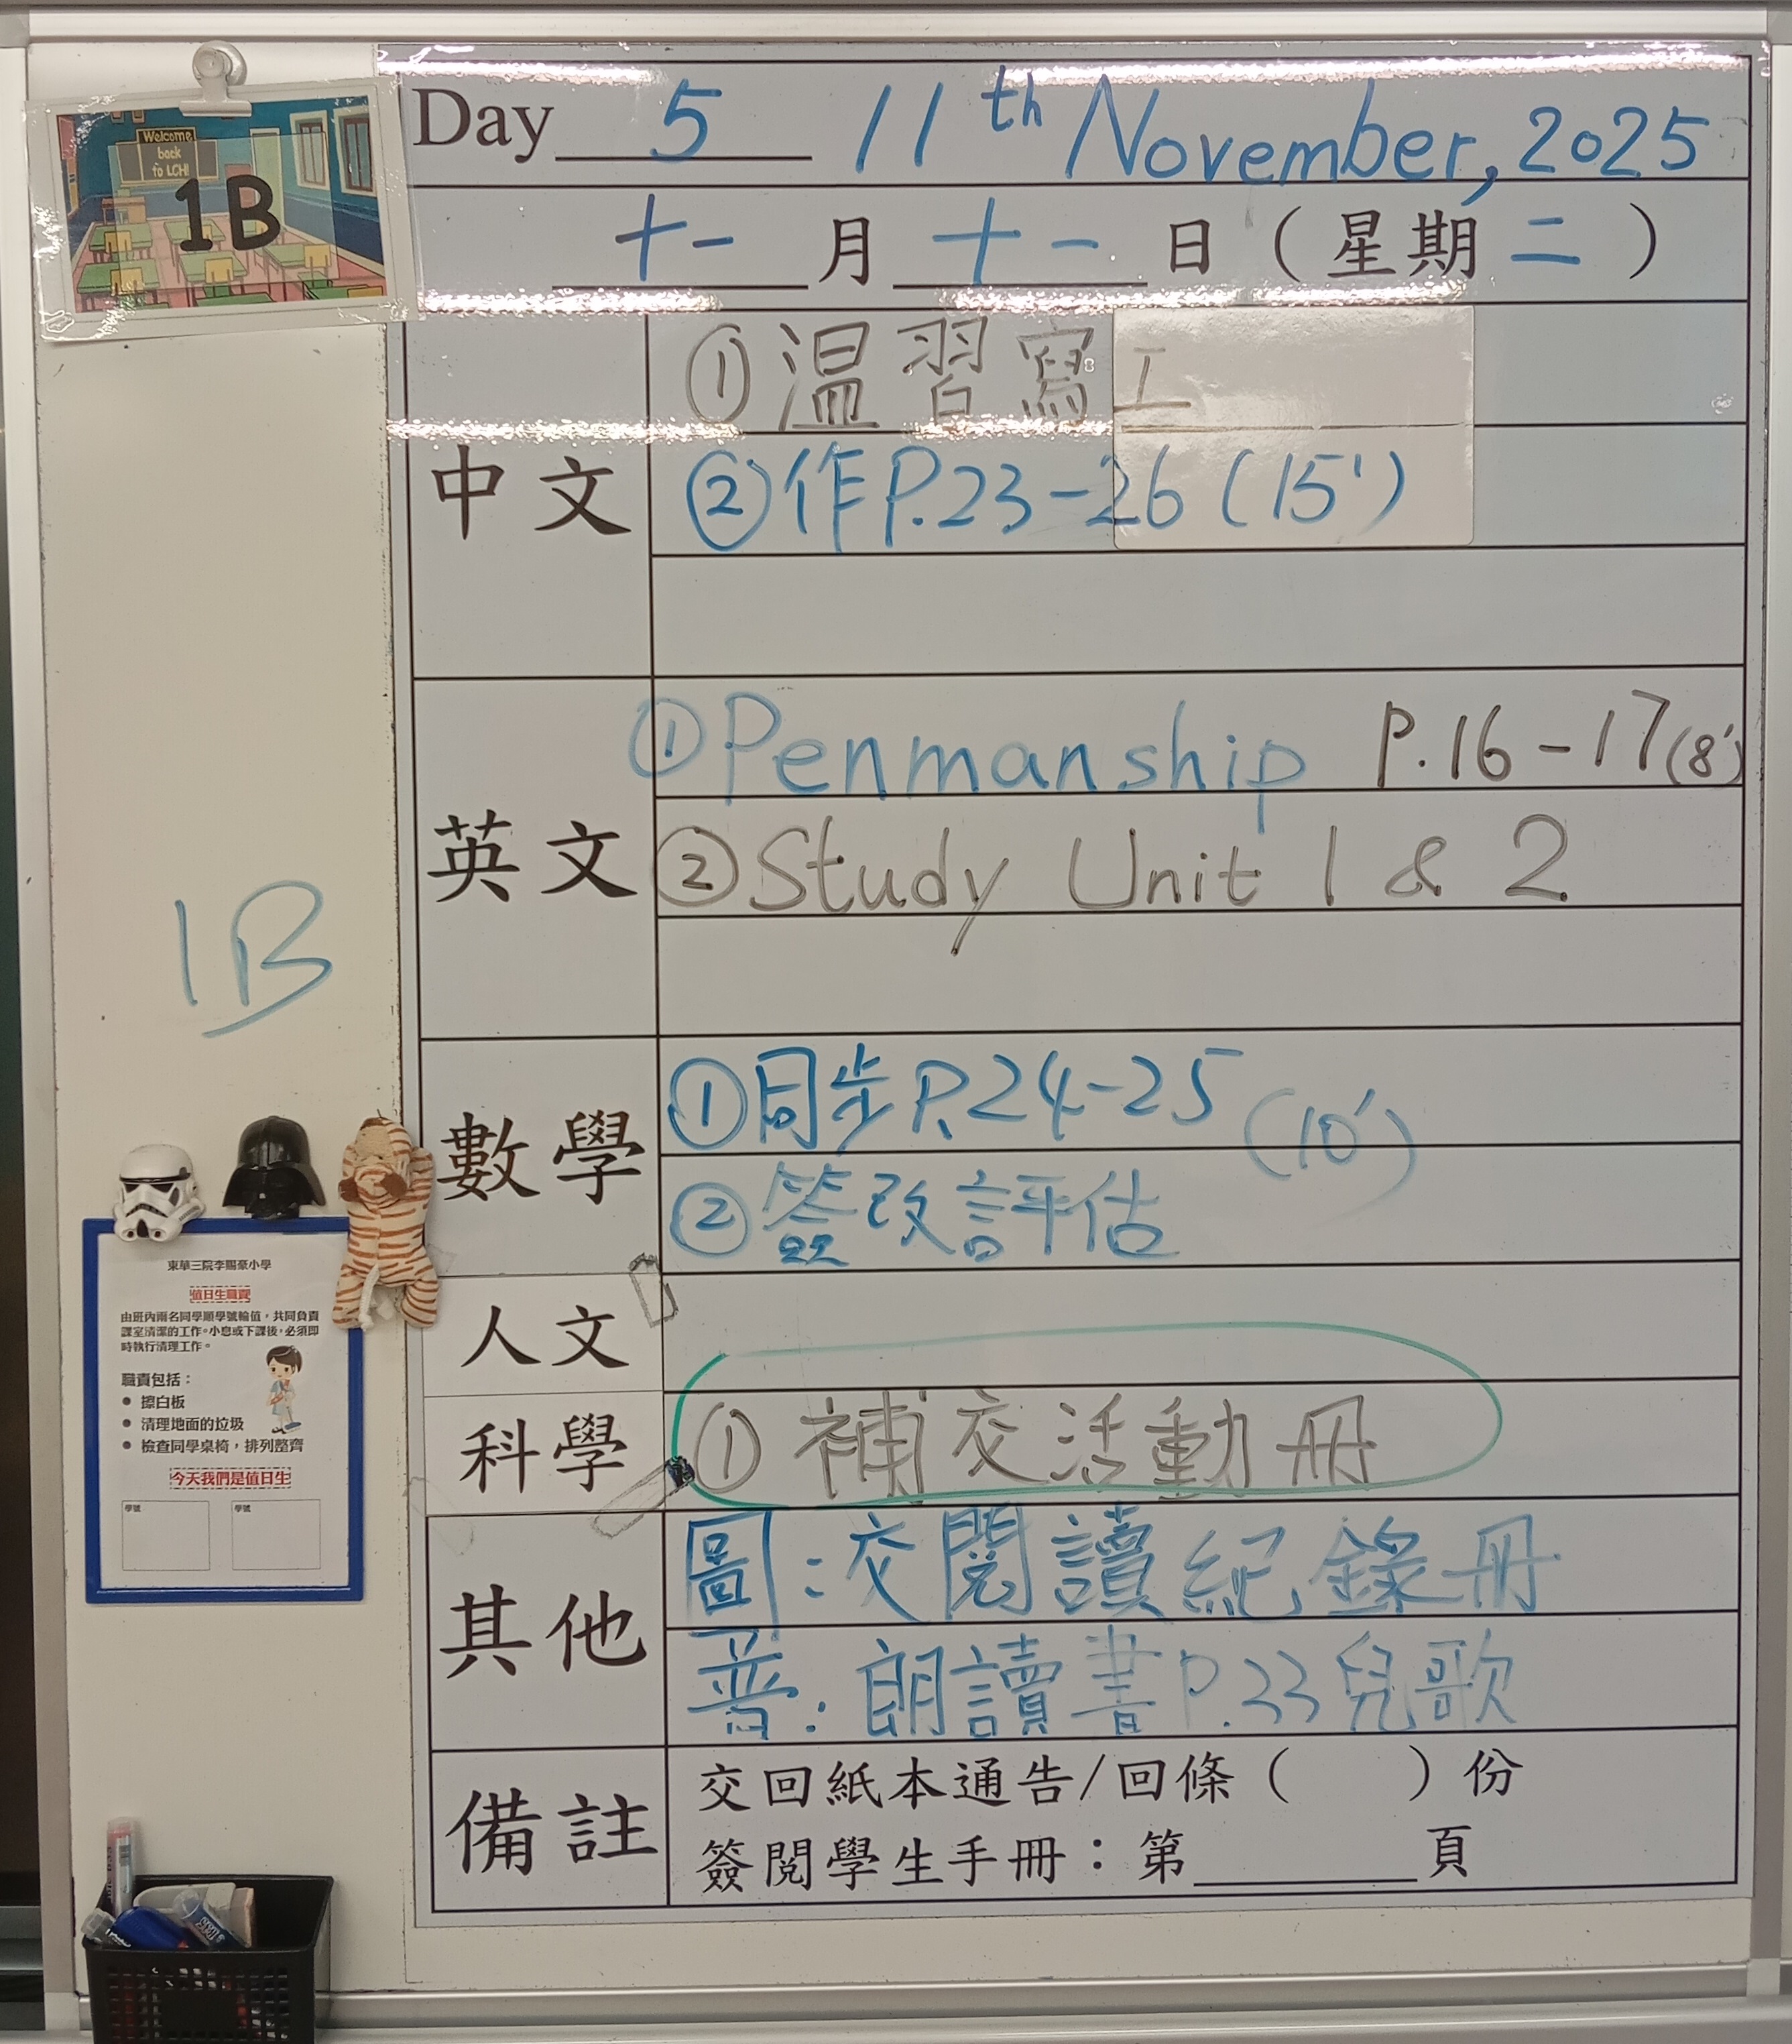 Welcome
back
to LCH!
1B
Day 5 11th November, 2025
十一月十一日（星期二）
中文
①温習寫工
②作P.23-26 (15')
英文
①Penmanship P.16-17(8')
②Study Unit 1 & 2
1B
數學
①同步P.24-25 (10')
②簽改評估
人文
科學
① 補交活動冊
其他
圖:交閱讀紀錄冊
普:朗讀書P.33兒歌
備註
交回紙本通告/回條（　　）份
簽閱學生手冊：第______頁
東華三院李賜豪小學
值日生職責
由班內兩名同學順學號輪值，共同負責
課室清潔的工作。小息或下課後，必須即
時執行清理工作。
職責包括：
● 擦白板
● 清理地面的垃圾
● 檢查同學桌椅，排列整齊
今天我們是值日生
學號
學號